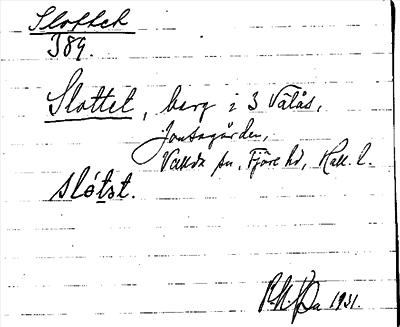 Slottet
I89.
Slottet, berg i 3 Valås,
Jontsgården,
Vallda sn, Fjäre hd, Hall. l.
slót:ət.
1931.